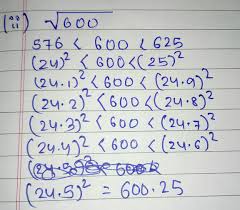 (iii) √600
576 < 600 < 625
(24)² < 600 < (25)²
(24.1)² < 600 < (24.9)²
(24.2)² < 600 < (24.8)²
(24.3)² < 600 < (24.7)²
(24.4)² < 600 < (24.6)²
(24.5)² = 600.25